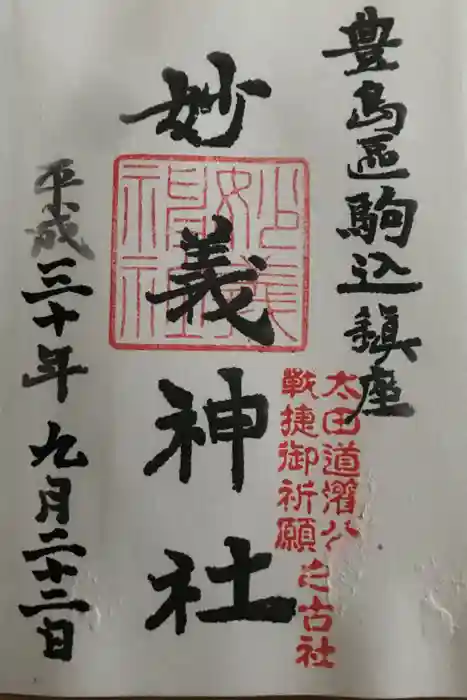 豊島區駒込鎮座
太田道灌公
戦捷御祈願
之古社
妙義神社
妙義
神社
平成三十年九月二十二日